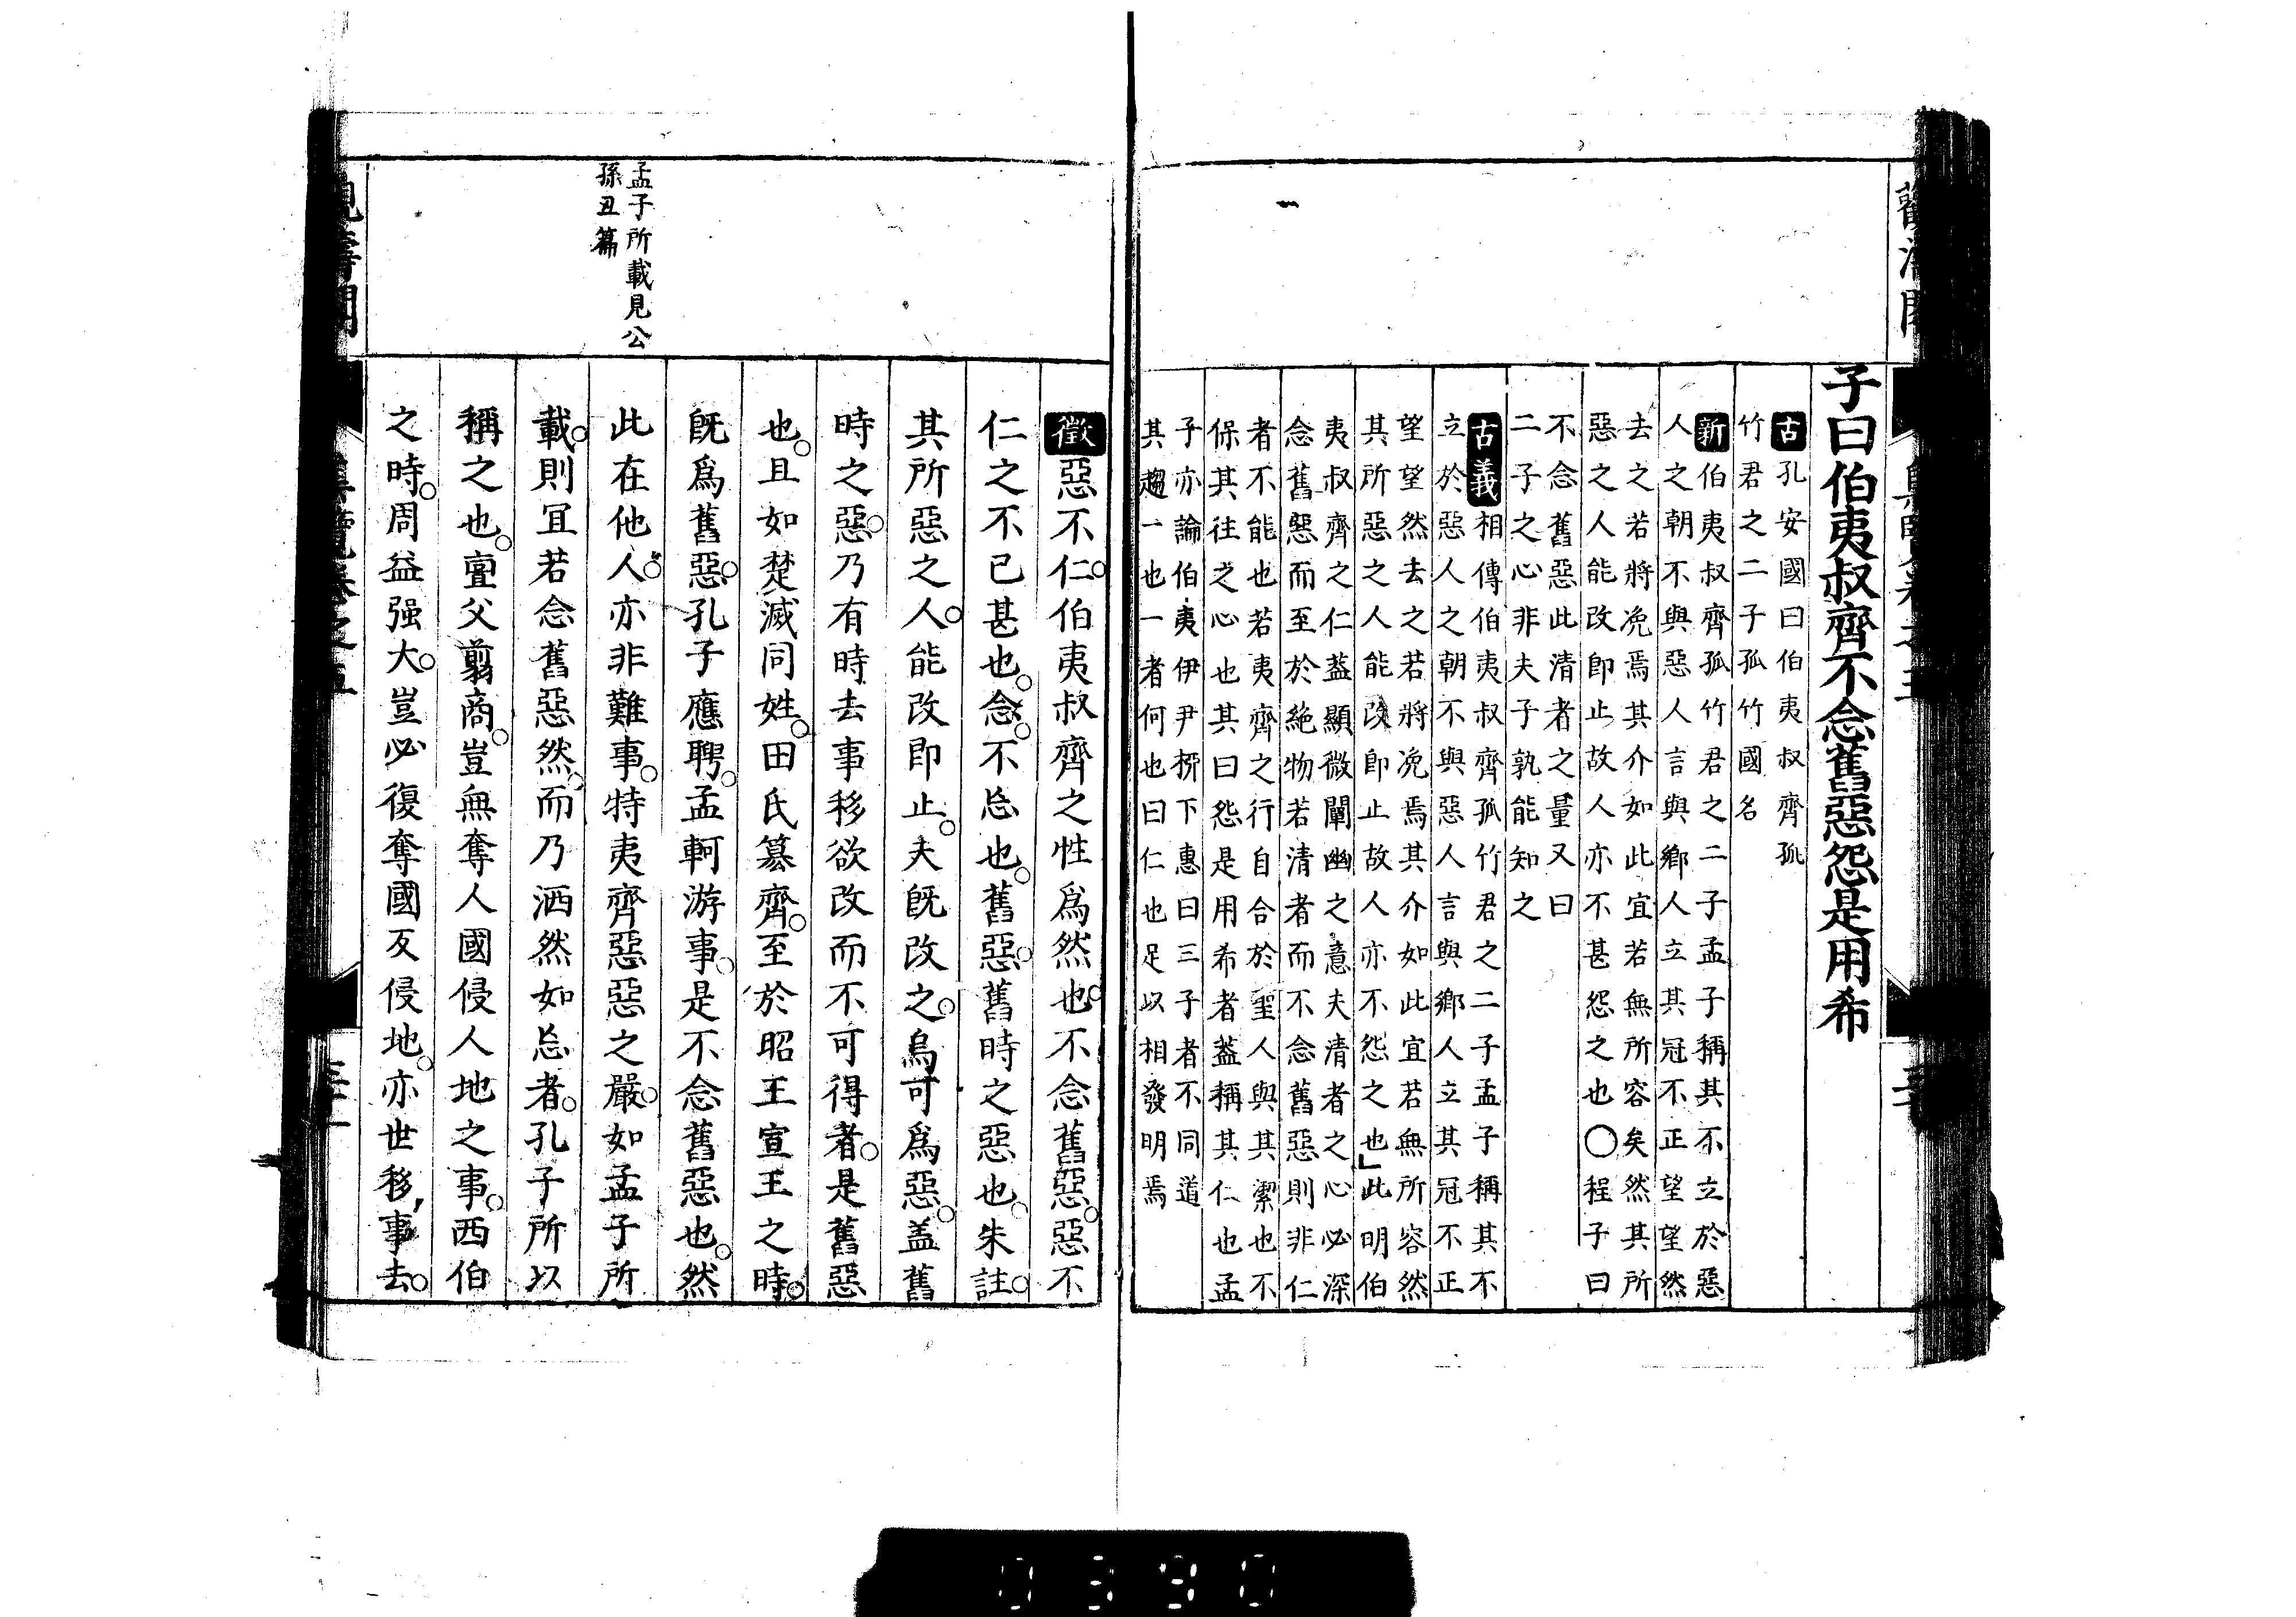 子曰伯夷叔齊不念舊惡怨是用希
古孔安國曰伯夷叔齊孤
竹君之二子孤竹國名
新伯夷叔齊孤竹君之二子孟子稱其不立於惡
人之朝不與惡人言與鄉人立其冠不正望望然
去之若將凂焉其介如此宜若無所容矣然其所
惡之人能改即止故人亦不甚怨之也〇程子曰
不念舊惡此清者之量又曰
二子之心非夫子孰能知之
古義相傳伯夷叔齊孤竹君之二子孟子稱其不
立於惡人之朝不與惡人言與鄉人立其冠不正
望望然去之若將凂焉其介如此宜若無所容然
其所惡之人能改即止故人亦不怨之也此明伯
夷叔齊之仁蓋顯微闡幽之意夫清者之心必深
念舊惡而至於絶物若清者而不念舊惡則非仁
者不能也若夷齊之行自合於聖人與其潔也不
保其往之心也其曰怨是用希者蓋稱其仁也孟
子亦論伯夷伊尹柳下惠曰三子者不同道
其趨一也一者何也曰仁也足以相發明焉
孟子所載見公
孫丑篇
徵惡不仁伯夷叔齊之性爲然也不念舊惡惡不
仁之不已甚也念不忘也舊惡舊時之惡也朱註
其所惡之人能改即止夫既改之烏可爲惡蓋舊
時之惡乃有時去事移欲改而不可得者是舊惡
也且如楚滅同姓田氏簒齊至於昭王宣王之時
既爲舊惡孔子應聘孟軻游事是不念舊惡也然
此在他人亦非難事特夷齊惡惡之嚴如孟子所
載則冝若念舊惡然而乃洒然如忘者孔子所以
稱之也亶父翦商豈無奪人國侵人地之事西伯
之時周益强大豈必復奪國反侵地亦世移事去